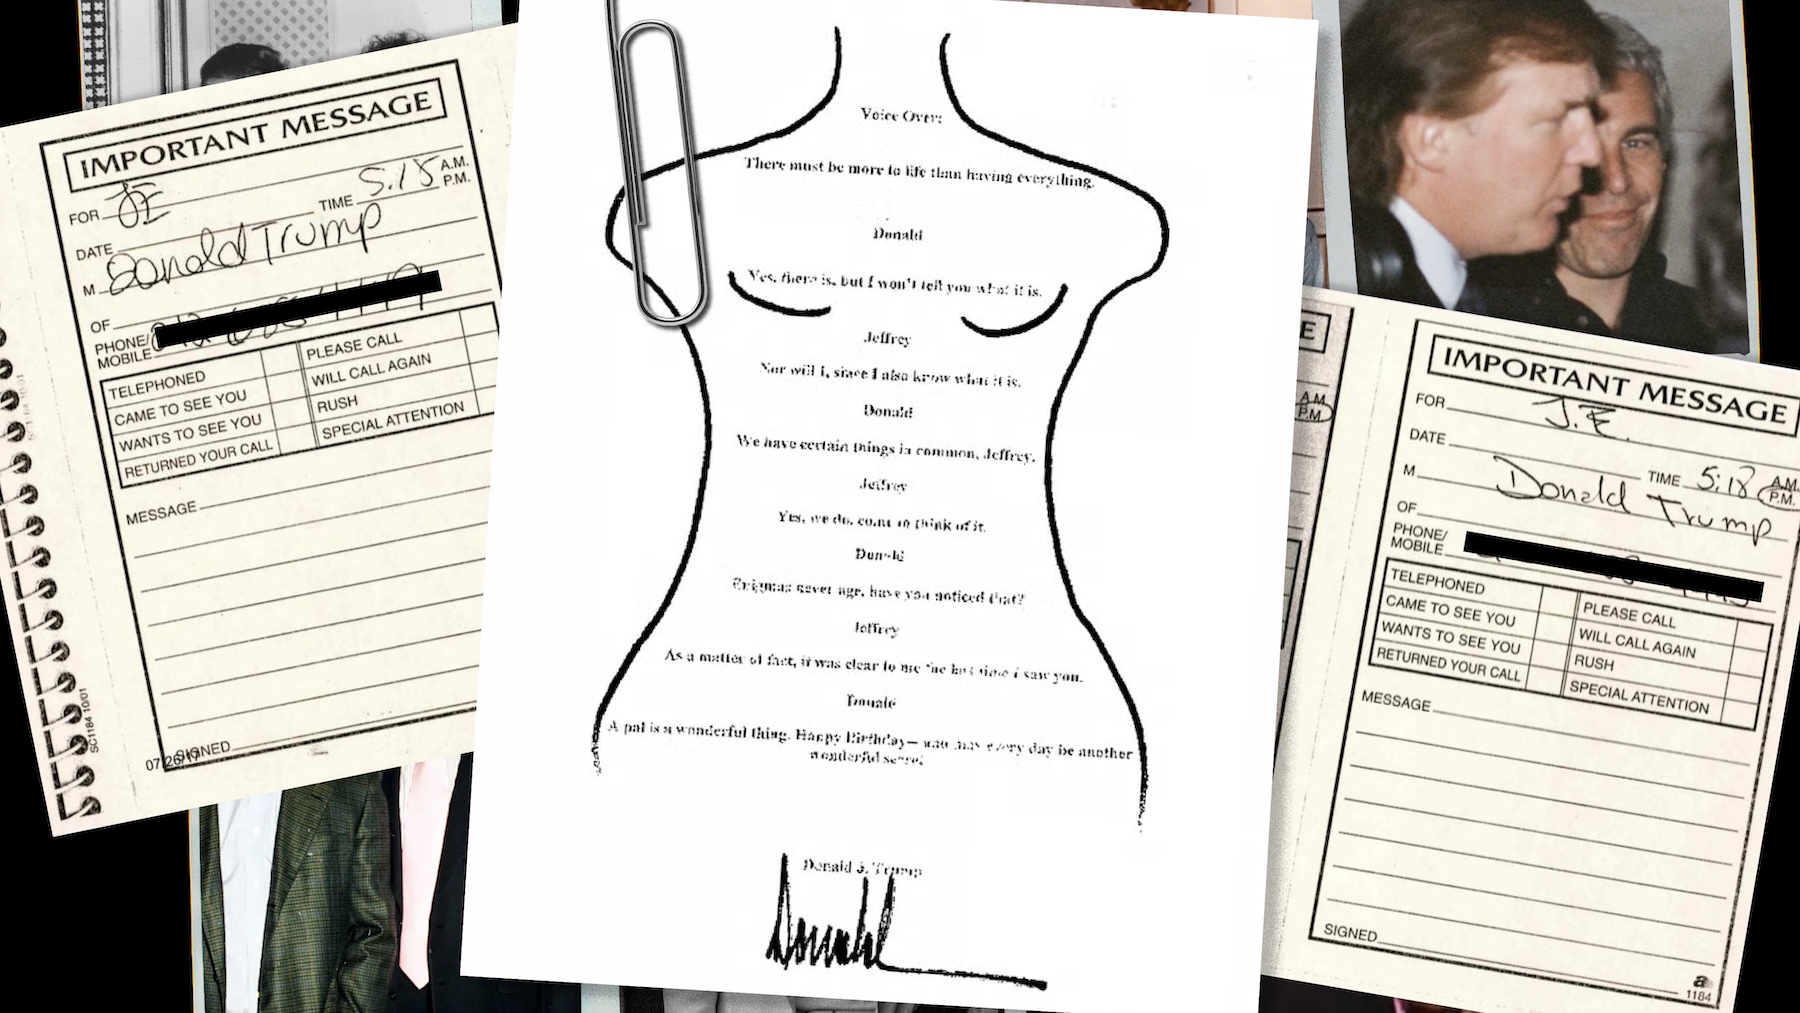 IMPORTANT MESSAGE
FOR JE
TIME 5:18 A.M.
P.M.
DATE
M Donald Trump
OF
PHONE/
MOBILE
TELEPHONED
PLEASE CALL
CAME TO SEE YOU
WILL CALL AGAIN
WANTS TO SEE YOU
RUSH
RETURNED YOUR CALL
SPECIAL ATTENTION
MESSAGE
SIGNED
07/26/17
SC1184 10/01
Voice Over:
There must be more to life than having everything.
Donald
Yes, there is, but I won't tell you what it is.
Jeffrey
Nor will I, since I also know what it is.
Donald
We have certain things in common, Jeffrey.
Jeffrey
Yes, we do, come to think of it.
Donald
Enigmas never age, have you noticed that?
Jeffrey
As a matter of fact, it was clear to me the last time I saw you.
Donald
A pal is a wonderful thing. Happy Birthday — and may every day be another
wonderful secret.
Donald J. Trump
Donald
E
A.M
P.M.
IMPORTANT MESSAGE
FOR J.E.
DATE
TIME 5:18 A.M.
P.M.
M Donald Trump
OF
PHONE/
MOBILE
TELEPHONED
PLEASE CALL
CAME TO SEE YOU
WILL CALL AGAIN
WANTS TO SEE YOU
RUSH
RETURNED YOUR CALL
SPECIAL ATTENTION
MESSAGE
SIGNED
a
1184